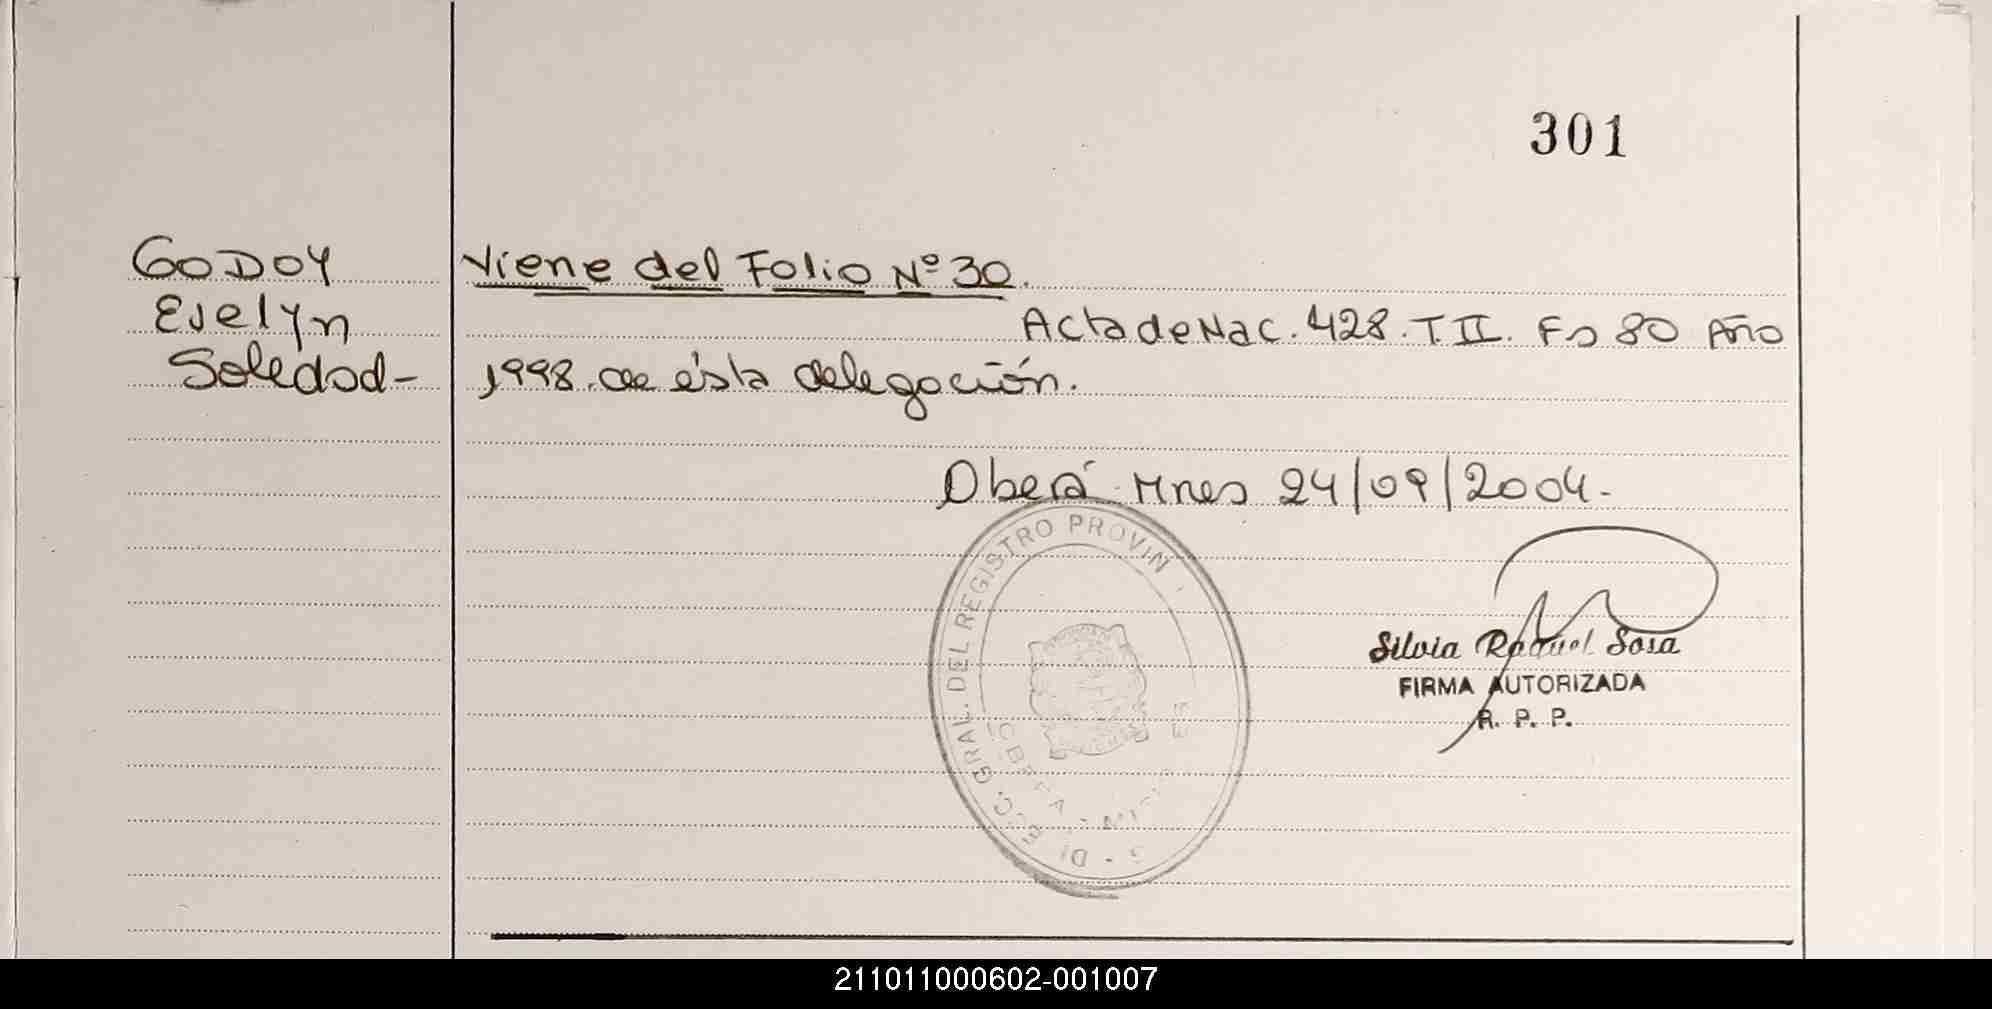 301
GODOY
Evelyn
Soledad-
Viene del Folio Nº 30.
Acta de Nac. 428. T II. Fo 80 Año
1998. de ésta delegación.
Oberá Mnes 24/09/2004.-
GRAL. DEL REGISTRO PROVIN
Silvia Raquel Sosa
FIRMA AUTORIZADA
R. P. P.
211011000602-001007